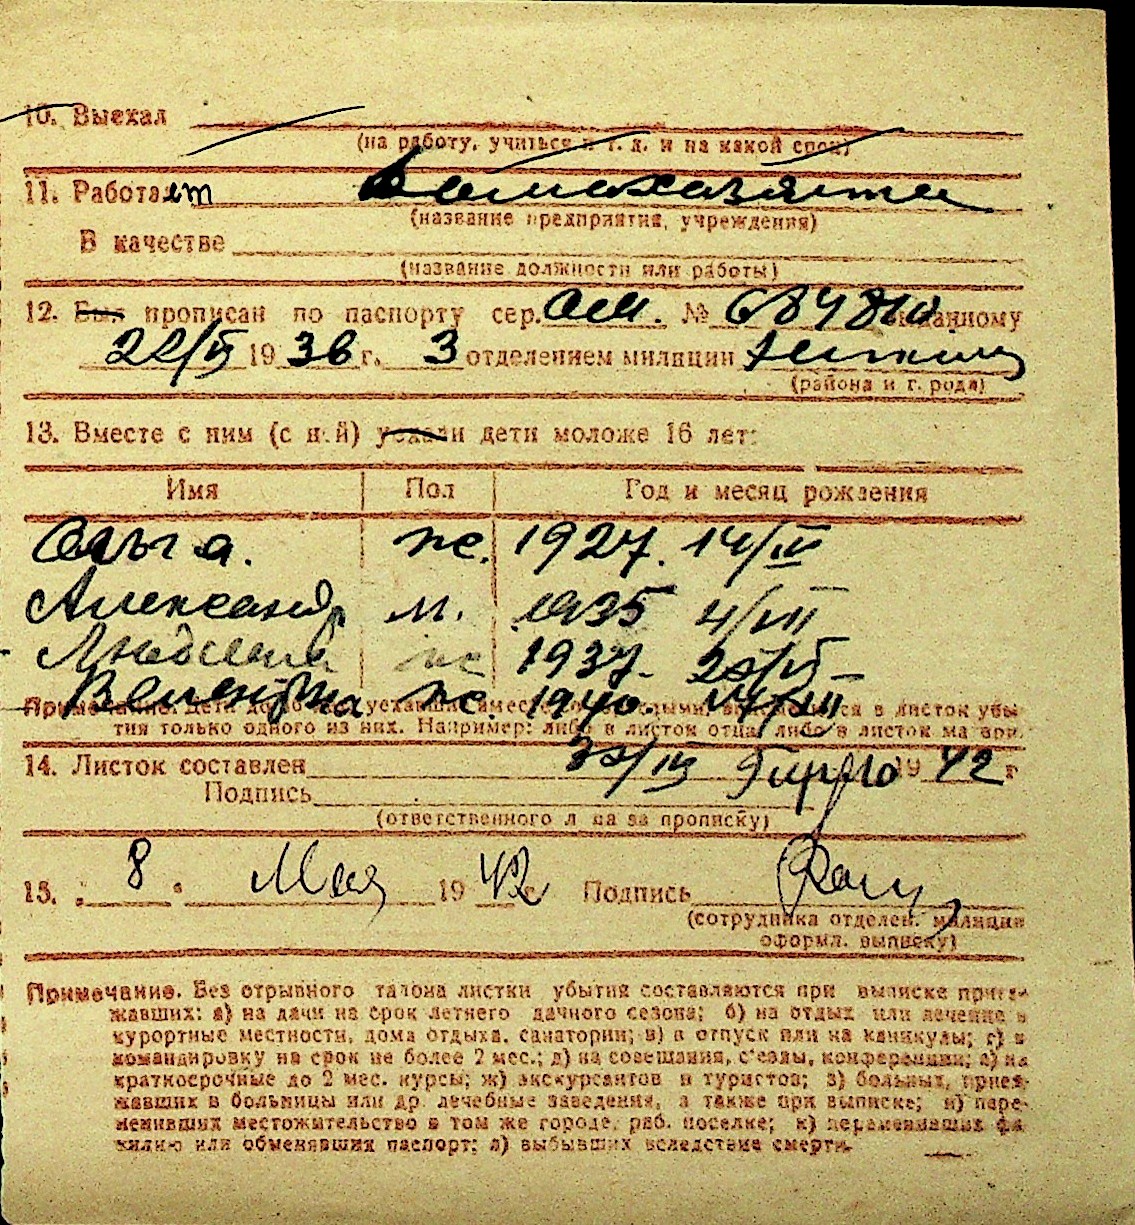 10. Выехал
(на работу, учиться и т. д. и на какой срок)
11. Работает Домохозяйка
(название предприятия, учреждения)
В качестве
(название должности или работы)
12. Был прописан по паспорту сер. № 684810 выданному
22/VI 1936 г. 3 отделением милиции
(района и г. рода)
13. Вместе с ним (с ней) уехали дети моложе 16 лет:
Имя Пол Год и месяц рождения
Ольга. ж. 1927. 14/III
Александр м. 1935 4/VII
Людмила ж 1937.
Валентина ж. 1940.
Примечание. Дети до 16 лет, уехавшие вместе со взрослыми, вписываются в листок убы-
тия только одного из них. Например: либо в листок отца, либо в листок матери.
14. Листок составлен 30/III 1942 г
Подпись
(ответственного лица за прописку)
15. „ 8 “ Мая 1942 г. Подпись
(сотрудника отделен. милиции
оформл. выписку)
Примечание. Без отрывного талона листки убытия составляются при выписке приез-
жавших: а) на дачи на срок летнего дачного сезона; б) на отдых или лечение в
курортные местности, дома отдыха, санатории; в) в отпуск или на каникулы; г) в
командировку на срок не более 2 мес.; д) на совещания, съезды, конференции; е) на
краткосрочные до 2 мес. курсы; ж) экскурсантов и туристов; з) больных, приез-
жавших в больницы или др. лечебные заведения, а также при выписке; и) пере-
менивших местожительство в том же городе, раб. поселке; к) переменивших фа-
милию или обменявших паспорт; л) выбывших вследствие смерти.